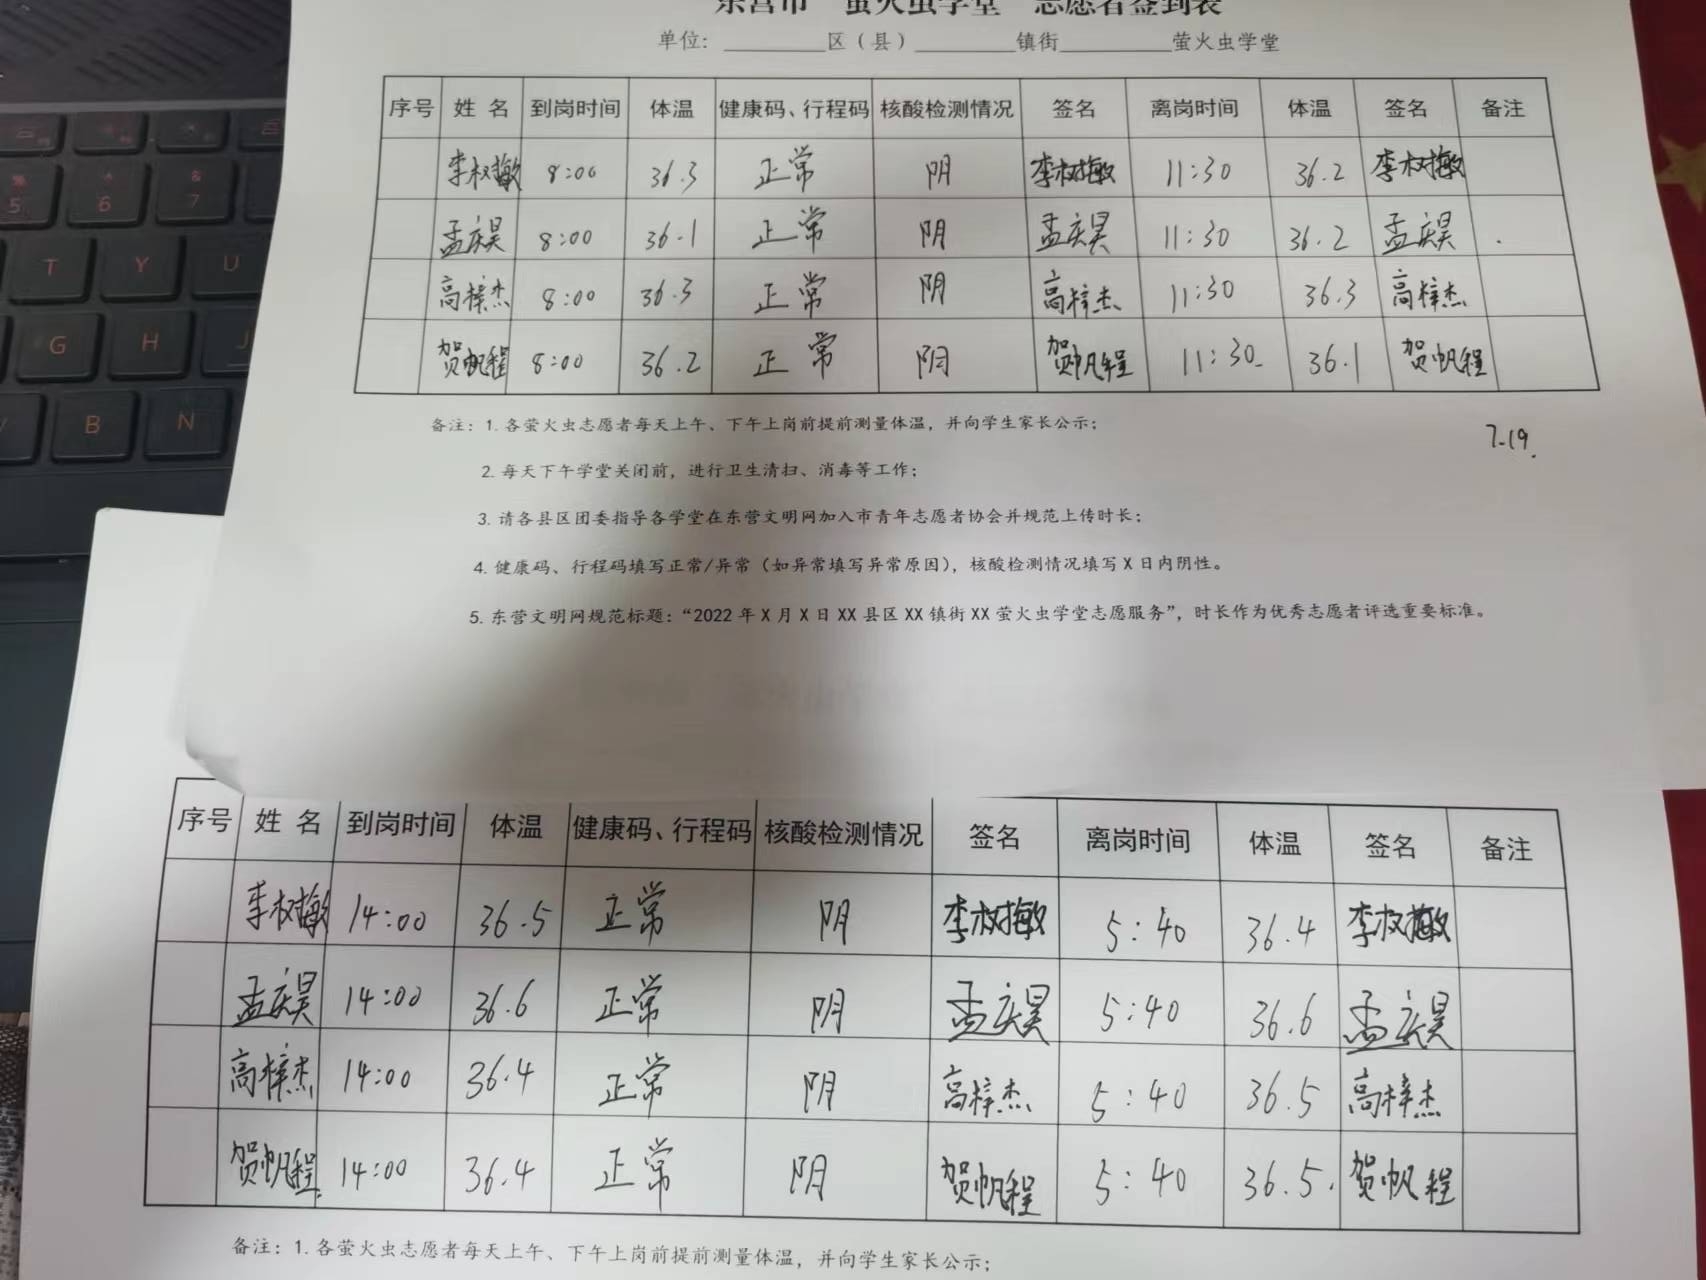 东营市“萤火虫学堂”志愿者签到表
单位：________区（县）________镇街________萤火虫学堂
序号 姓 名 到岗时间 体温 健康码、行程码 核酸检测情况 签名 离岗时间 体温 签名 备注
李树敏 8:00 36.3 正常 阴 李树敏 11:30 36.2 李树敏
孟庆昊 8:00 36.1 正常 阴 孟庆昊 11:30 36.2 孟庆昊
高梓杰 8:00 36.3 正常 阴 高梓杰 11:30 36.3 高梓杰
贺帆程 8:00 36.2 正常 阴 贺帆程 11:30 36.1 贺帆程
备注：1.各萤火虫志愿者每天上午、下午上岗前提前测量体温，并向学生家长公示；
7.19.
2.每天下午学堂关闭前，进行卫生清扫、消毒等工作；
3.请各县区团委指导各学堂在东营文明网加入市青年志愿者协会并规范上传时长；
4.健康码、行程码填写正常/异常（如异常填写异常原因），核酸检测情况填写X日内阴性。
5.东营文明网规范标题：“2022年X月X日XX县区XX镇街XX萤火虫学堂志愿服务”，时长作为优秀志愿者评选重要标准。
序号 姓 名 到岗时间 体温 健康码、行程码 核酸检测情况 签名 离岗时间 体温 签名 备注
李树敏 14:00 36.5 正常 阴 李树敏 5:40 36.4 李树敏
孟庆昊 14:00 36.6 正常 阴 孟庆昊 5:40 36.6 孟庆昊
高梓杰 14:00 36.4 正常 阴 高梓杰 5:40 36.5 高梓杰
贺帆程 14:00 36.4 正常 阴 贺帆程 5:40 36.5 贺帆程
备注：1.各萤火虫志愿者每天上午、下午上岗前提前测量体温，并向学生家长公示；
5
6
7
T
Y
U
G
H
J
V
B
N